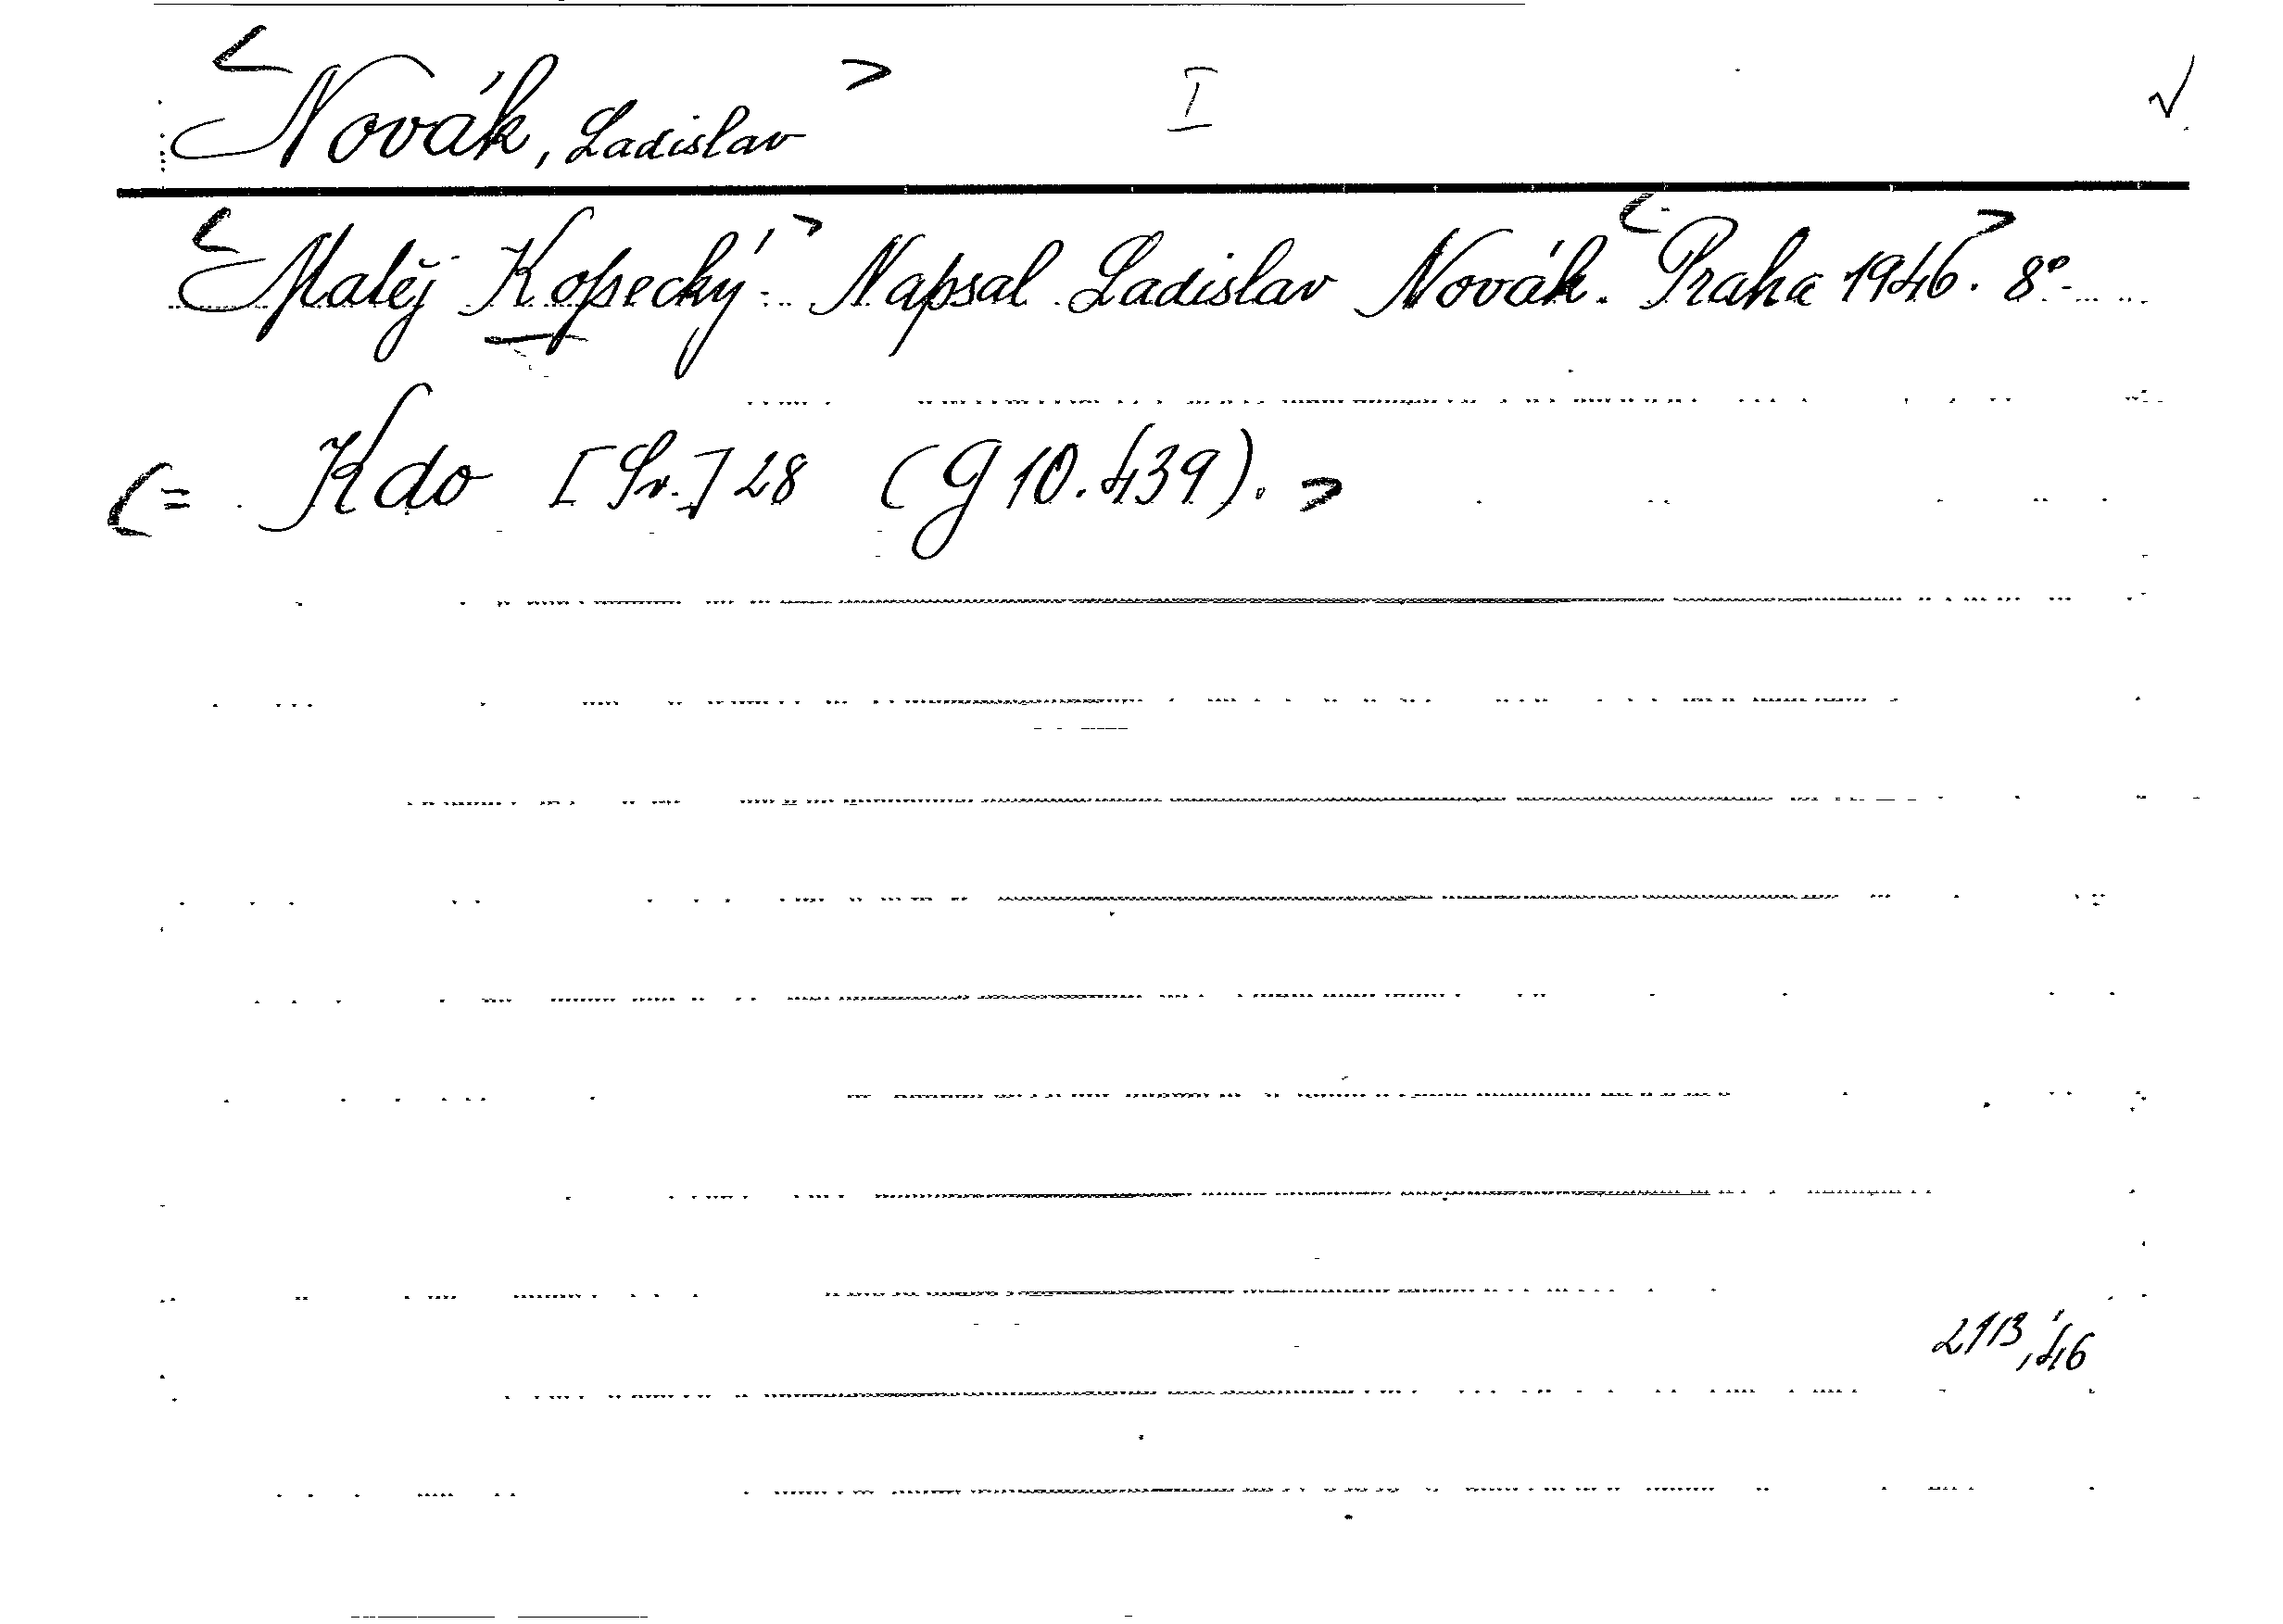 <Novák, Ladislav> I √
<Matěj Kopecký.> Napsal Ladislav Novák. <Praha 1946.> 8°.
(= Kdo [Sv.] 28 (G 10.439).>
2113,46